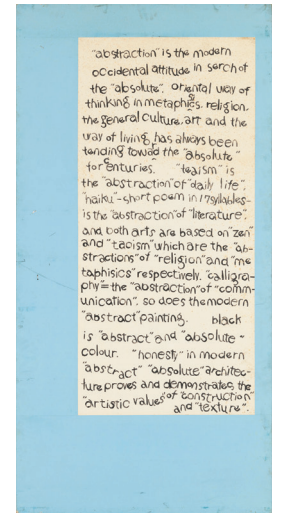 "abstraction" is the modern
occidental attitude in serch of
the "absolute". oriental way of
thinking in metaphics, religion,
the general culture, art and the
way of living has always been
tending towad the "absolute"
for centuries. "teaism" is
the "abstraction" of "daily life".
"haiku"-short poem in 17 syllables-
is the "abstraction" of "literature".
and both arts are based on "zen"
and "taoism" which are the "ab-
stractions" of "religion" and "me
taphisics" respectively. "calligra-
phy" = the "abstraction" of "comm-
unication". so does the modern
"abstract" painting. black
is "abstract" and "absolute"
colour. "honesty" in modern
"abstract" "absolute" architec-
ture proves and demonstrates the
"artistic values of construction"
and "texture".